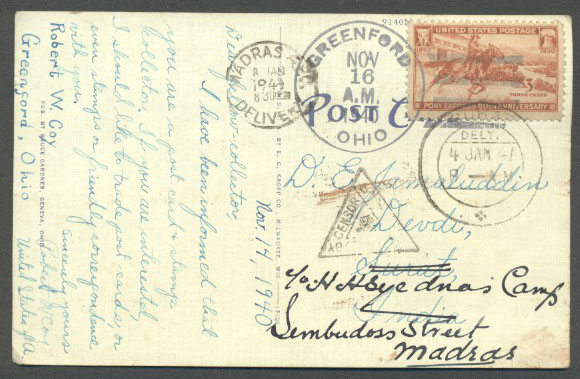 Nov. 14, 1940
Dear co-collector,
I have been informed that
you are a post card & stamp
collector. If you are interested,
I should like to trade post cards, or
even stamps or friendly correspondence
with you.
Sincerely yours
Robert W. Coy
Robert W. Coy
Greenford, Ohio
United States, A.
PUB. BY BRUCE GARDNER, GENEVA, OHIO
E. C. KROPP CO., MILWAUKEE, WIS.
9140
MADRAS
8 JAN
1941
8 30
DELIVERY
GREENFORD
NOV
16
A.M.
1940
OHIO
Post C
UNITED STATES POSTAGE
1940
PONY EXPRESS 80TH ANNIVERSARY
DELY.
4 JAN 41
CENSOR
BY
D. E. Jamaluddin
Devdi,
Surat,
India
c/o H H Syednas Camp
Sembudoss Street
Madras